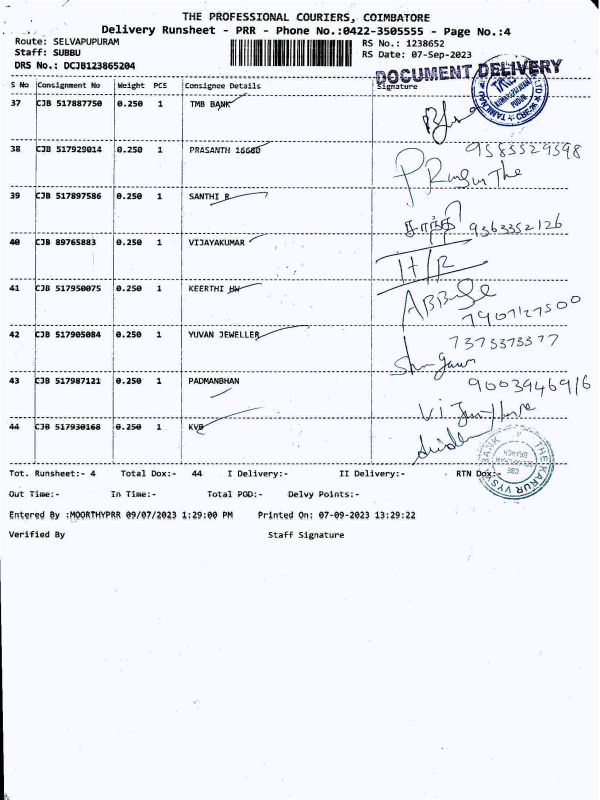 THE PROFESSIONAL COURIERS, COIMBATORE
Delivery Runsheet - PRR - Phone No.:0422-3505555 - Page No.:4
Route: SELVAPUPURAM RS No.: 1238652
Staff: SUBBU RS Date: 07-Sep-2023
DRS No.: DCJB123865204
DOCUMENT DELIVERY
S No Consignment No Weight PCS Consignee Details Signature
37 CJB 517887750 0.250 1 TMB BANK
9585529598
38 CJB 517929014 0.250 1 PRASANTH 16680
39 CJB 517897586 0.250 1 SANTHI R
சாந்தி 9363352126
40 CJB 89765883 0.250 1 VIJAYAKUMAR
H/R
41 CJB 517950075 0.250 1 KEERTHI HW
7907127500
42 CJB 517905084 0.250 1 YUVAN JEWELLER
7373373377
43 CJB 517987121 0.250 1 PADMANBHAN
9003946916
44 CJB 517930168 0.250 1 KVB
THE KARUR VYSYA BANK
Tot. Runsheet:- 4 Total Dox:- 44 I Delivery:- II Delivery:- RTN Dox:-
Out Time:- In Time:- Total POD:- Delvy Points:-
Entered By :MOORTHYPRR 09/07/2023 1:29:00 PM Printed On: 07-09-2023 13:29:22
Verified By Staff Signature